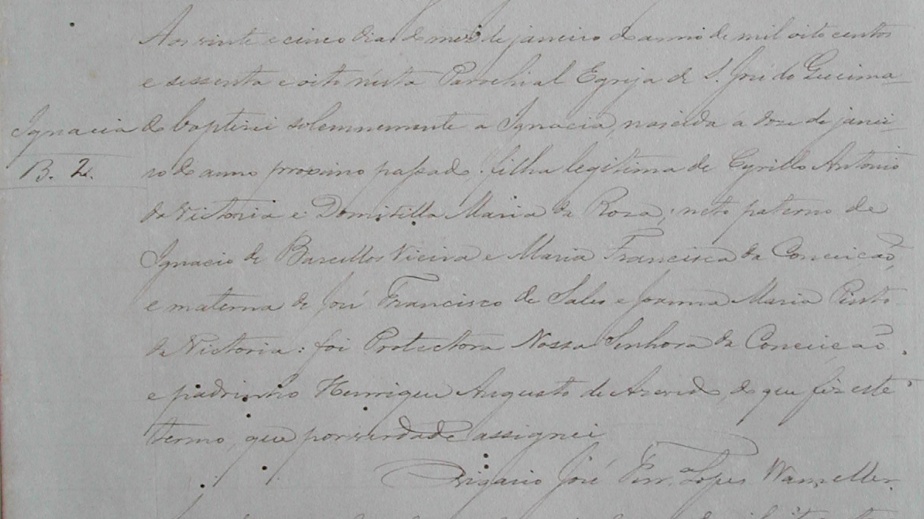 Aos vinte e cinco dias do mes de janeiro do anno de mil oito centos
e sessenta e oito nesta Parochial Egreja de S. José do Gecima
Ignacia
B. 2.
do baptisei solemnemente a Ignacia, nascida a doze de janei-
ro do anno proximo passado: filha legitima de Cyrillo Antonio
da Victoria e Domitilla Maria da Rosa; neto paterno de
Ignacio de Barcellos Vieira e Maria Francisca da Conceição,
e materna de José Francisco de Sales e Joanna Maria Pinto
da Victoria: foi Protectora Nossa Senhora da Conceição
e padrinho Henrique Augusto de Azevedo, do que fiz este
termo, que por verdade assignei
José Ferr.ª Lopes